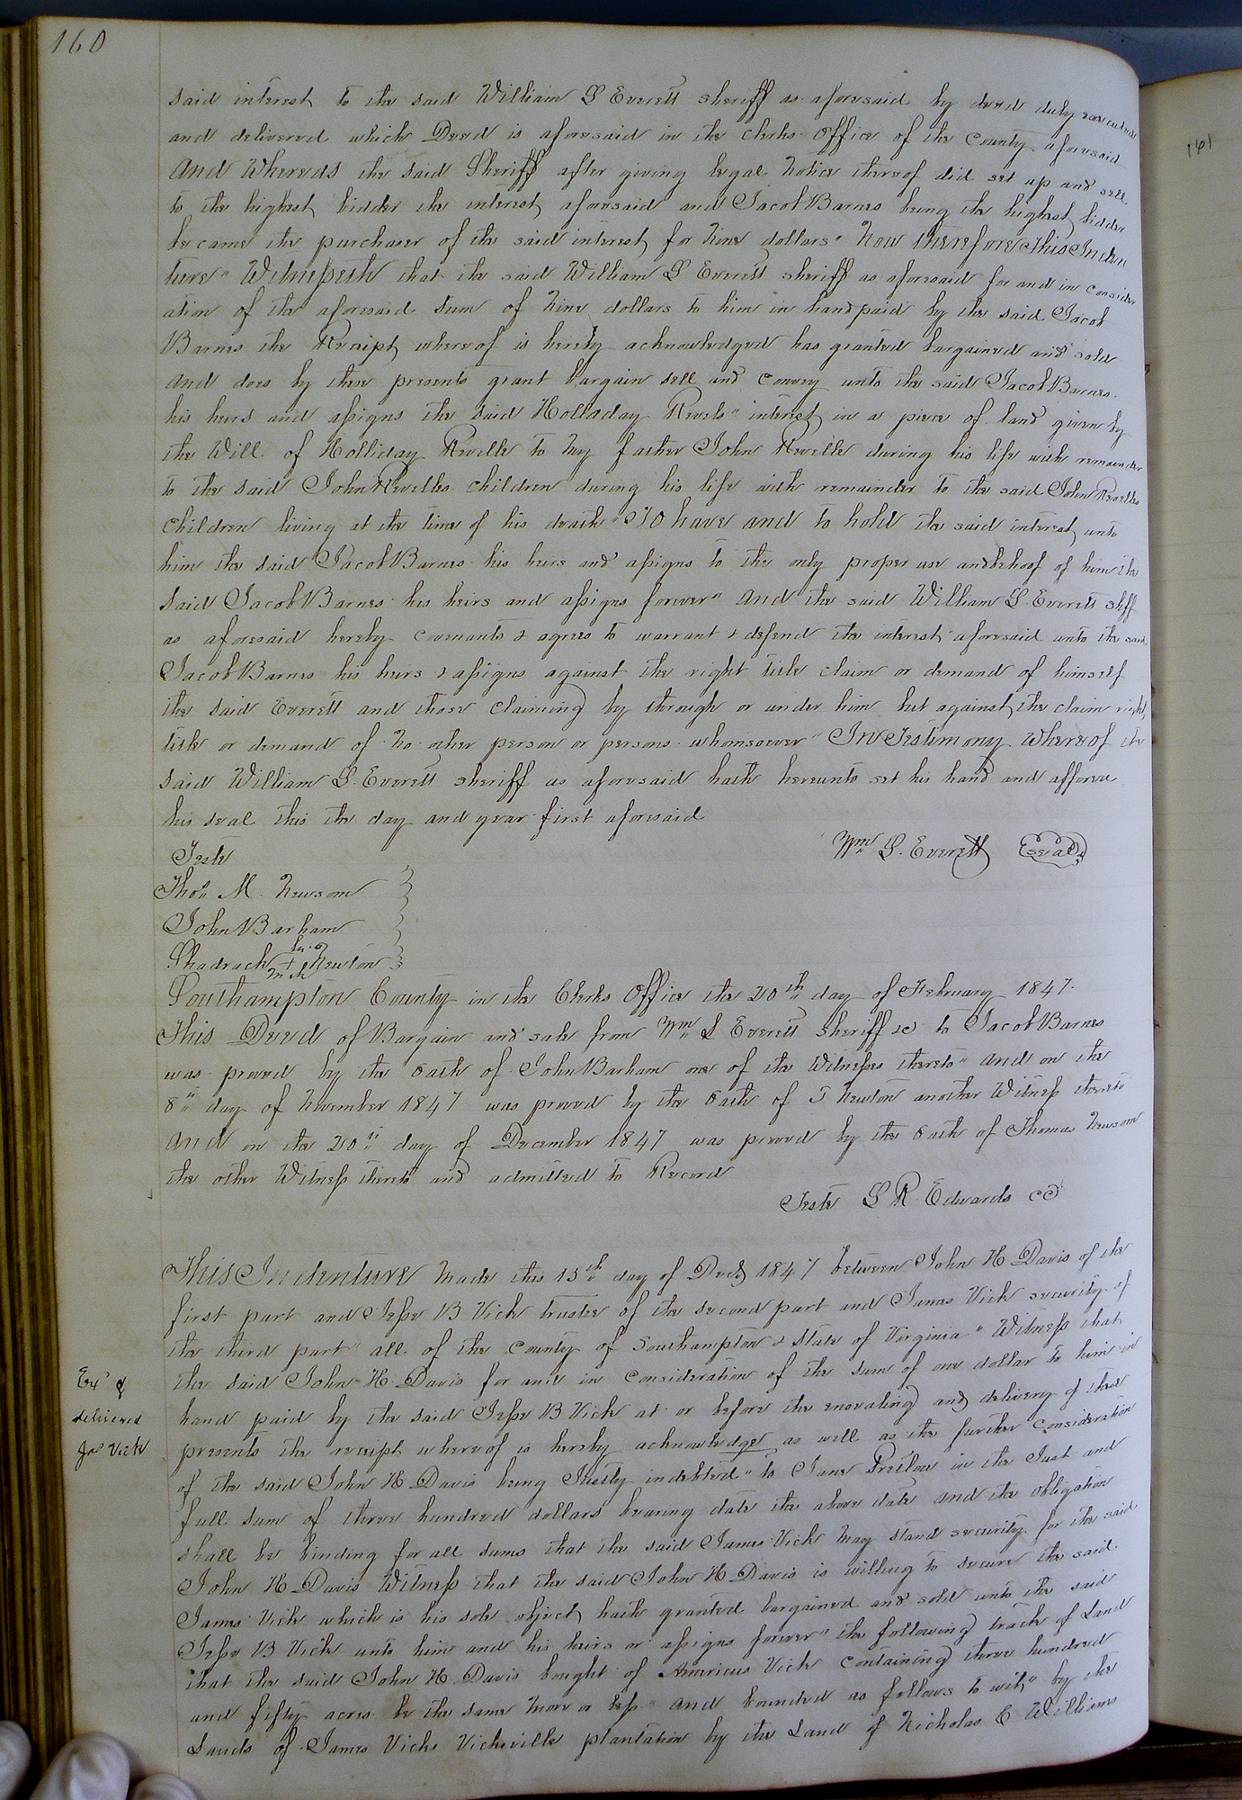 160
161
said interest to the said William S Everett sheriff as aforesaid by deed duly executed
and delivered which Deed is aforesaid in the clerks office of the County aforesaid
And Whereas the said Sheriff after giving legal Notice thereof did set up and sell
to the highest bidder the interest aforesaid and Jacob Barnes being the highest bidder
became the purchaser of the said interest for Nine dollars" Now therefore this Inden
ture" Witnesseth that the said William S Everett sheriff as aforesaid for and in consider
ation of the aforesaid Sum of Nine dollars to him in hand paid by the said Jacob
Barnes the Receipt whereof is hereby acknowledged has granted bargained and sold
And does by these presents grant bargain sell and Convey unto the said Jacob Barnes
his heirs and assigns the said Holladay Revels" interest in a piece of land given by
the Will of Holliday Revelle to my father John Revelle during his life with remainder
to the said John Revelles children during his life with remainder to the said John Revelles
Children living at the time of his death" To have and to hold the said interest unto
him the said Jacob Barnes his heirs and assigns to the only proper use and behoof of him the
Said Jacob Barnes his heirs and assigns forever" And the said William S Everett shff
as aforesaid hereby covenants & agrees to warrant & defend the interest aforesaid unto the said
Jacob Barnes his heirs & assigns against the right title claim or demand of himself
the said Everett and those claiming by through or under him but against the claim right
title or demand of No other person or persons whomsoever" In Testimony Whereof the
Said William S. Everett sheriff as aforesaid hath hereunto set his hand and affixed
his seal this the day and year first aforesaid
Wm S. Everett Seal
Teste
Thos M. Newsom
John Barham
his
Shadrach + Newton
mk
Southampton County in the Clerks Office the 20th day of February 1847.
This Deed of Bargain and sale from Wm S Everett Sheriff &c to Jacob Barnes
was proved by the Oath of John Barham one of the Witnesses thereto" And on the
8" day of November 1847 was proved by the Oath of S Newton another Witness thereto
And on the 20th day of December 1847 was proved by the Oath of Thomas Newsom
the other Witness thereto and admitted to Record
Teste L R Edwards CC
This Indenture Made this 15th day of Decr 1847 between John H Davis of the
first part and Jesse B Vick trustee of the second part and James Vick security of
the third part" all of the County of Southampton & State of Virginia" Witness that
the said John H. Davis for and in Consideration of the sum of one dollar to him in
hand paid by the said Jesse B Vick at or before the ensealing and delivery of these
presents the receipt whereof is hereby acknowledget as well as the further Consideration
of the said John H Davis being Justly indebted" to Jane Pretlow in the Just and
full sum of three hundred dollars bearing date the above date and the obligation
shall be binding for all sums that the said James Vick may stand security for the said
John H Davis Witness that the said John H Davis is willing to secure the said
James Vick which is his sole object hath granted bargained and sold unto the said
Jesse B Vick unto him and his heirs or assigns forever" the following track of Land
that the said John H Davis bought of Americus Vick containing three hundred
and fifty acres be the same more or less" and bounded as follows to wit" by the
Lands of James Vicks Vicksville plantation by the Land of Nicholas C Williams
Exd &
delivered
Jas Vick